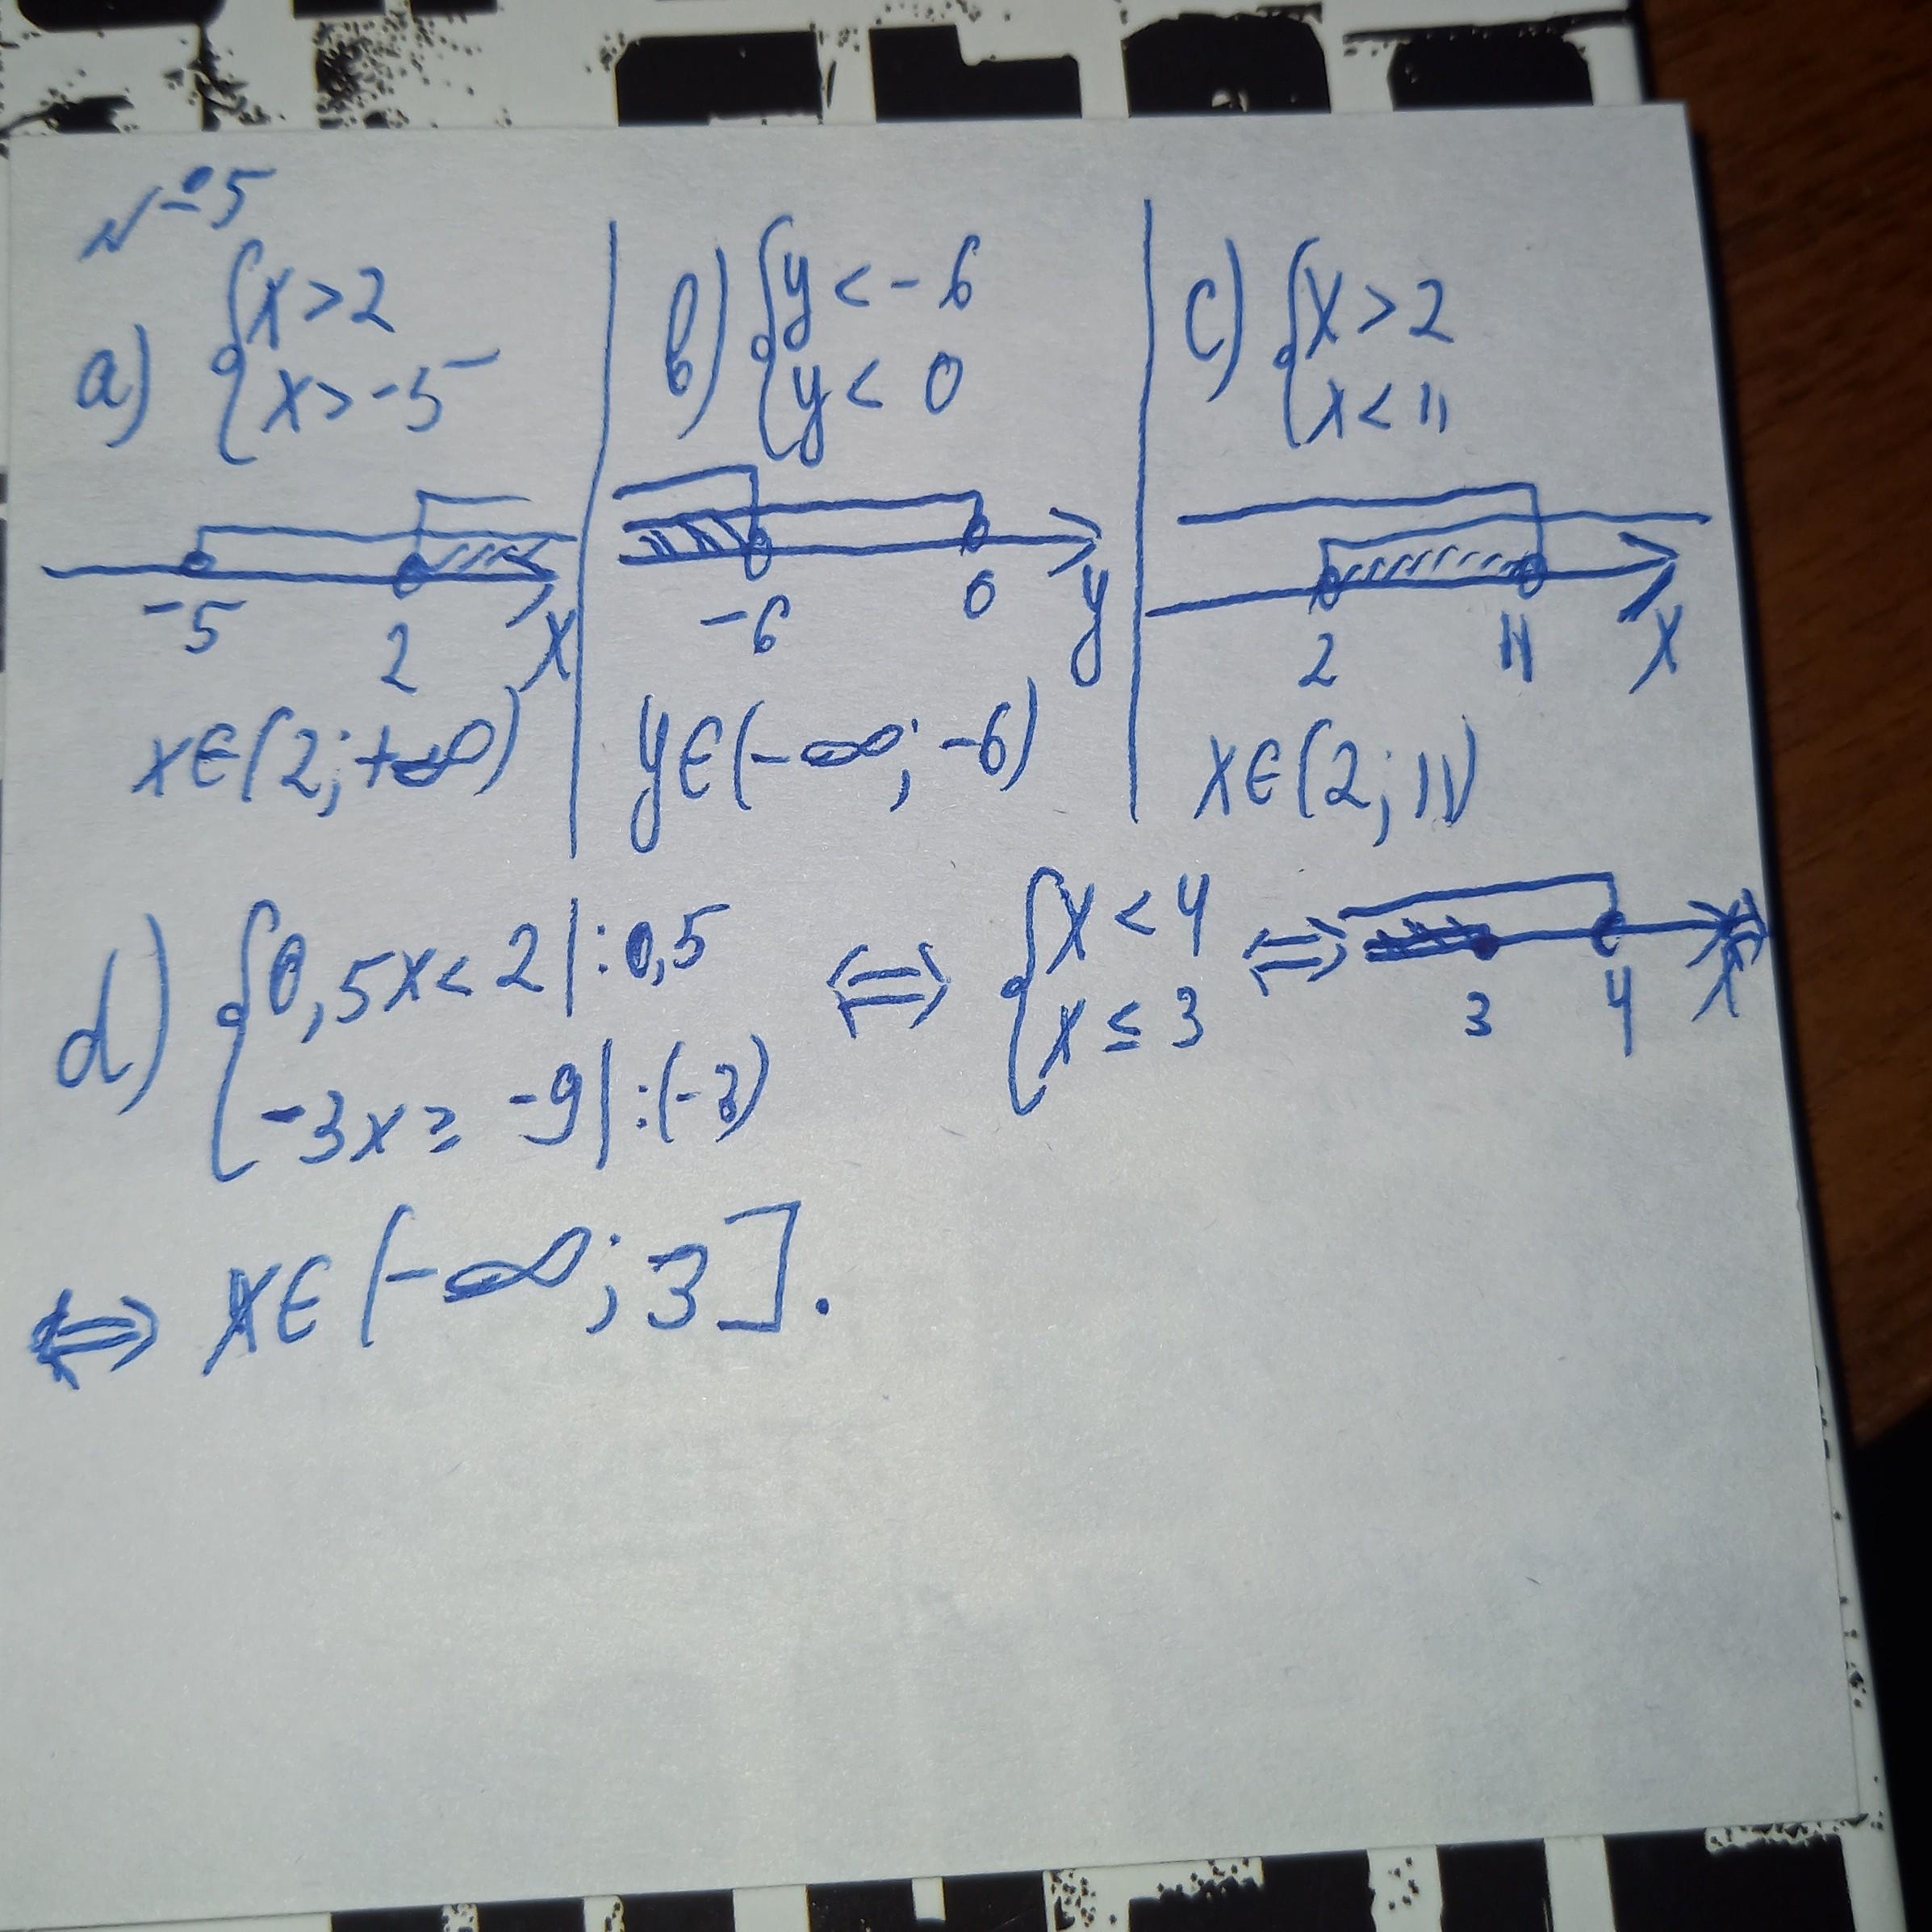 №5
a) { x > 2
x > -5
-5 2 x
x∈(2; +∞)
b) { y < -6
y < 0
-6 0 y
y∈(-∞; -6)
c) { x > 2
x < 11
2 11 x
x∈(2; 11)
d) { 0,5x < 2 | :0,5 ⇔ { x < 4 ⇔ 3 4 x
-3x ≥ -9 | :(-3) x ≤ 3
⇔ x∈(-∞; 3].